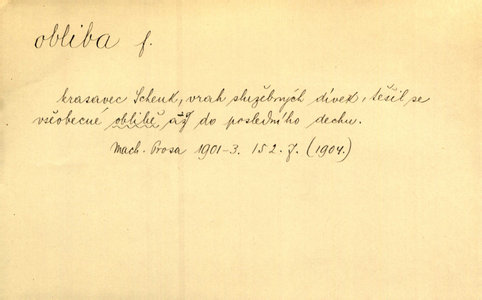 obliba f.
krasavec Schenk, vrah služebných dívek, těšil se
všeobecné oblibě až do posledního dechu.
Mach. Prosa 1901-3. 152. J. (1904.)